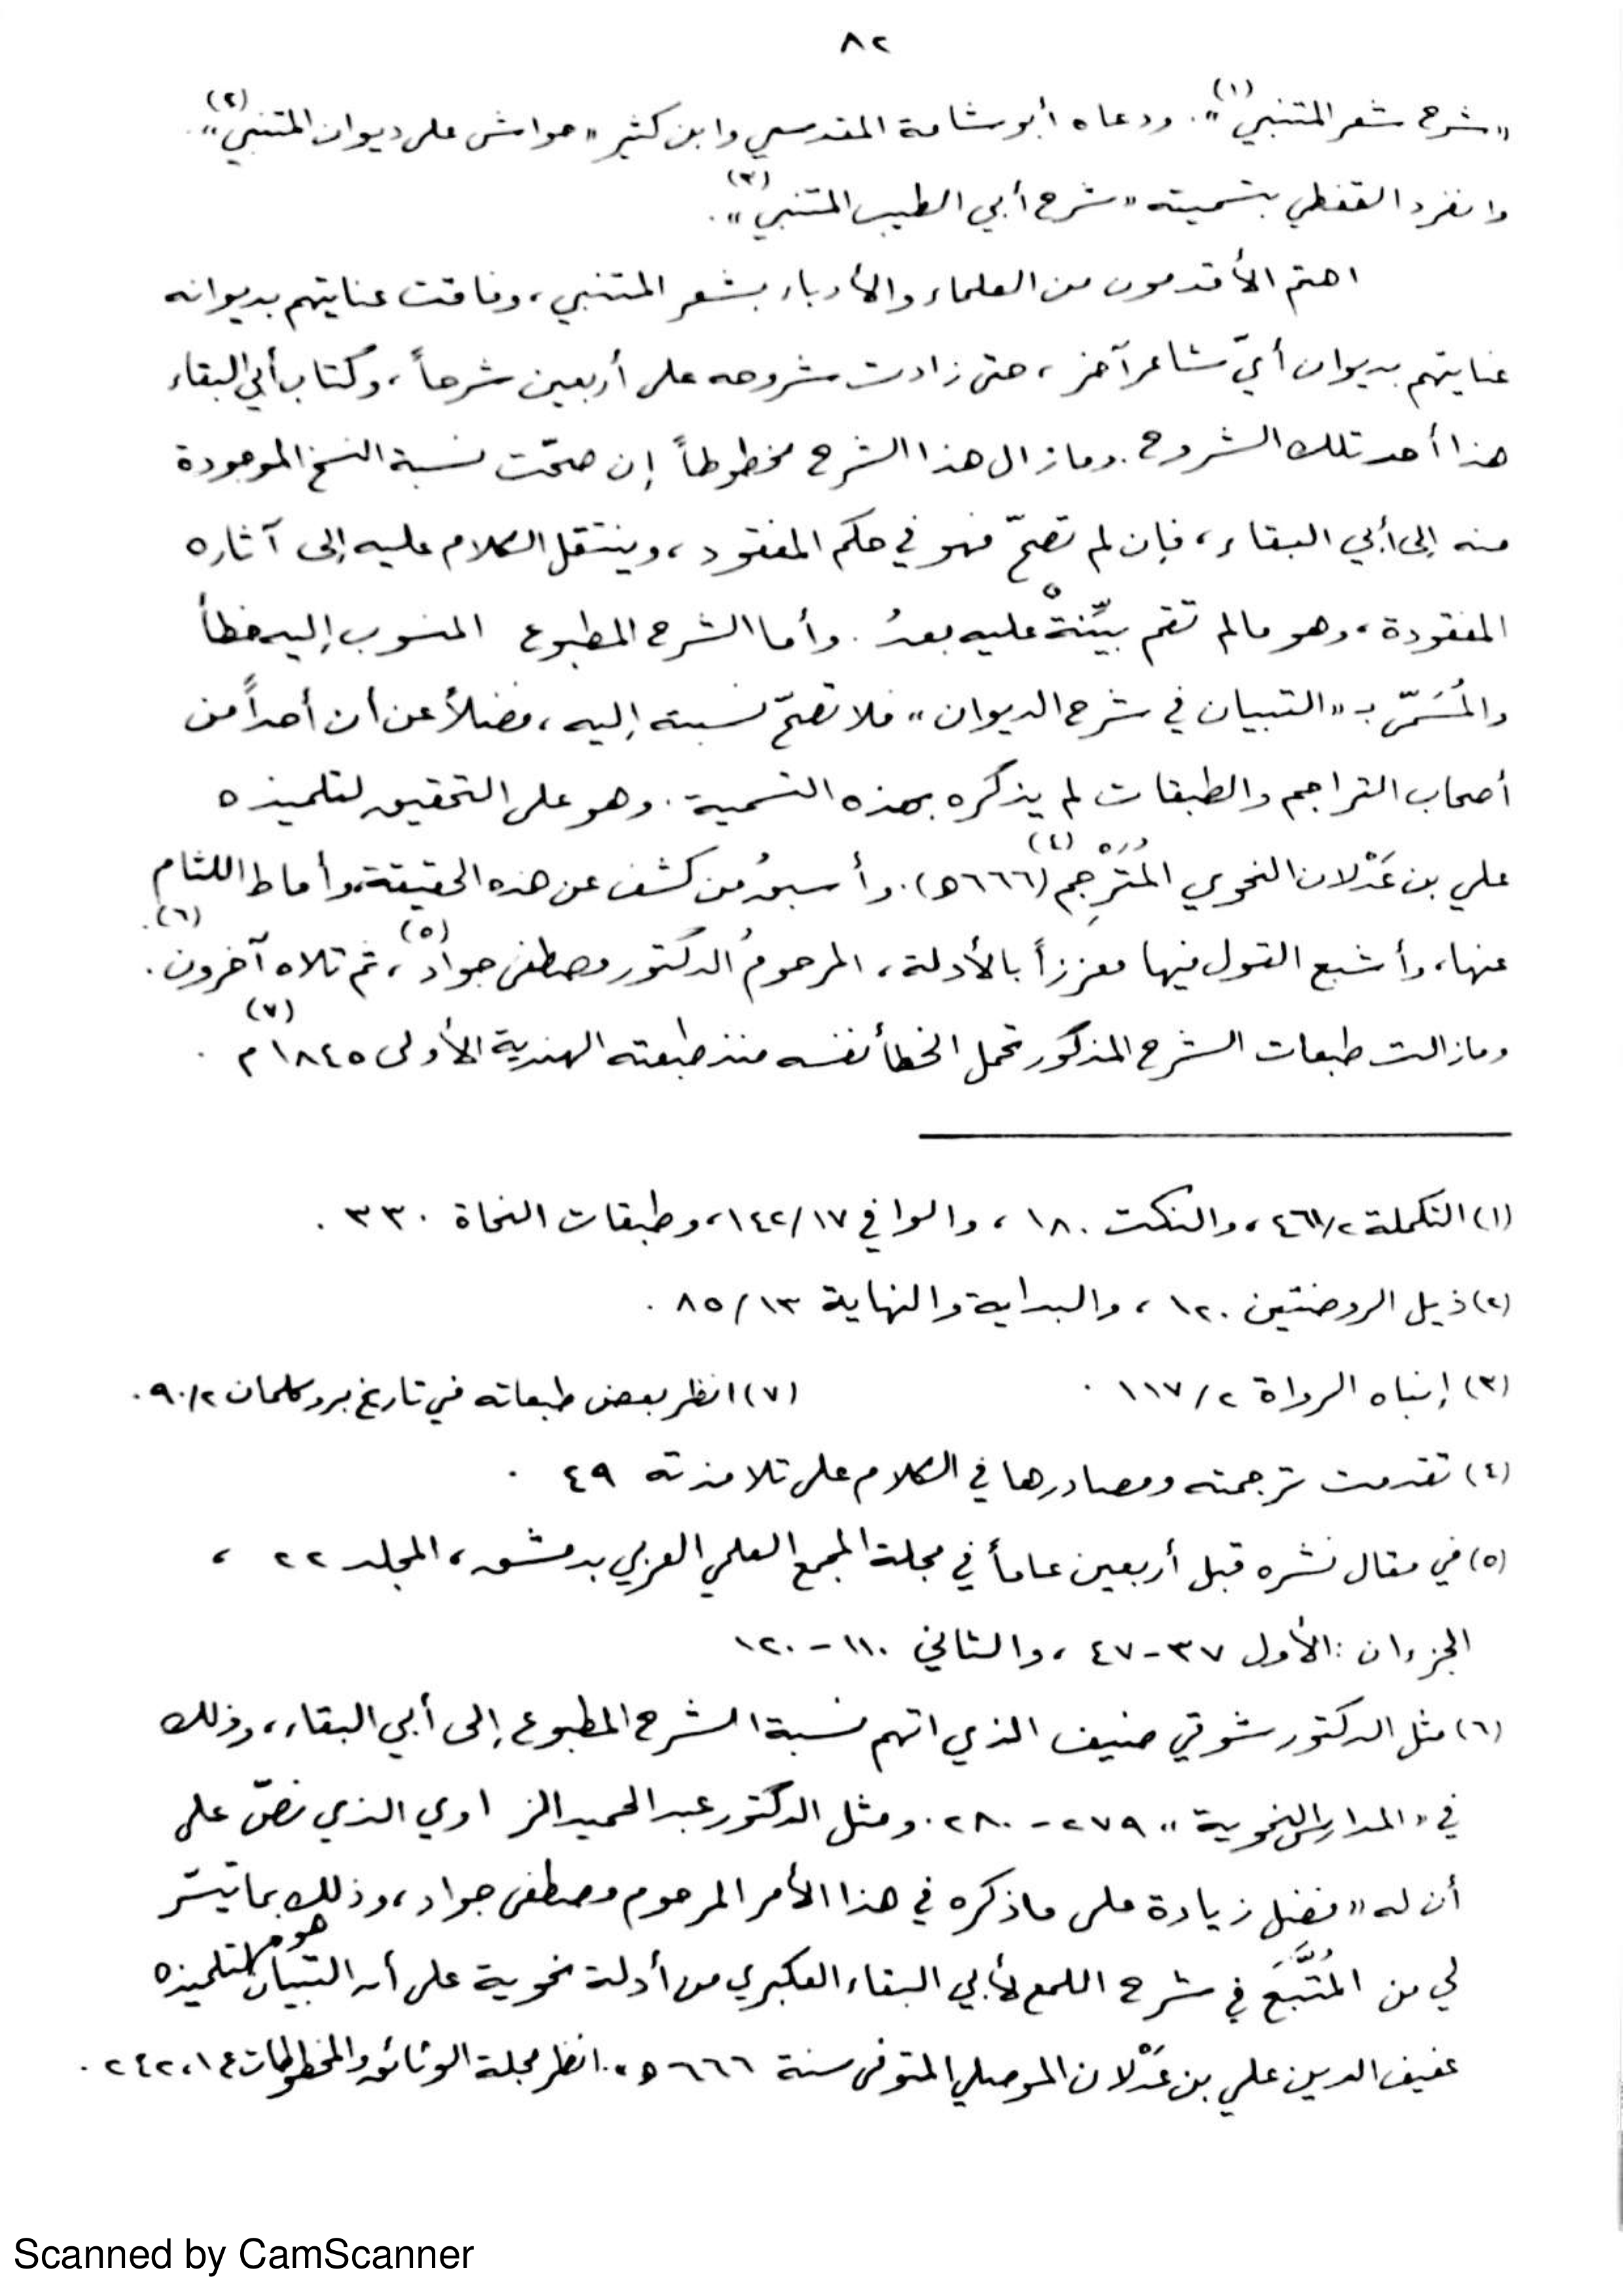 ٨٢
«شرح شعر المتنبي(١)». ودعاه أبو شامة المقدسي وابن كثير «حواشي على ديوان المتنبي(٢)».
وانفرد القفطي بتسميته «شرح أبي الطيب المتنبي(٣)».
اهتم الأقدمون من العلماء والأدباء بشعر المتنبي، وفاقت عنايتهم بديوانه
عنايتهم بديوان أيّ شاعر آخر، حتى زادت شروحه على أربعين شرحاً، وكتاب أبي البقاء
هذا أحد تلك الشروح. وما زال هذا الشرح مخطوطاً إن صحّت نسبة النسخ الموجودة
منه إلى أبي البقاء، فإن لم تصحّ فهو في حكم المفقود، وينتقل الكلام عليه إلى آثاره
المفقودة، وهو ما لم تقم بيِّنةٌ عليه بعدُ. وأما الشرح المطبوع المنسوب إليه خطأً
والمُسَمّى بـ «التبيان في شرح الديوان» فلا تصحّ نسبته إليه، فضلاً عن أن أحداً من
أصحاب التراجم والطبقات لم يذكره بهذه التسمية. وهو على التحقيق لتلميذه
علي بن عَدْلان النحوي المُتَرْجِم(٤) (٦٦٦ه). وأسبقُ من كشف عن هذه الحقيقة، وأماط اللثام
عنها، وأشبع القول فيها معززاً بالأدلة، المرحومُ الدكتور مصطفى جواد(٥)، ثم تلاه آخرون(٦).
وما زالت طبعات الشرح المذكور تحمل الخطأ نفسه منذ طبعته الهندية الأولى ١٨٤٥م(٧).
(١) التكملة ٤٦١/٢، والنكت ١٨٠، والوافي ١٤٢/١٧، وطبقات النحاة ٣٣٠.
(٢) ذيل الروضتين ١٢٠، والبداية والنهاية ٨٥/١٣.
(٣) إنباه الرواة ١١٧/٢. (٧) انظر بعض طبعاته في تاريخ بروكلمان ٩٠/٢.
(٤) تقدمت ترجمته ومصادرها في الكلام على تلامذته ٤٩.
(٥) في مقال نشره قبل أربعين عاماً في مجلة المجمع العلمي العربي بدمشق، المجلد ٢٢،
الجزءان: الأول ٣٧-٤٧، والثاني ١١٠-١٢٠
(٦) مثل الدكتور شوقي ضيف الذي اتهم نسبة الشرح المطبوع إلى أبي البقاء، وذلك
في «المدارس النحوية» ٢٧٩-٢٨٠. ومثل الدكتور عبد الحميد الزاوي الذي نصّ على
أن له «فضل زيادة على ما ذكره في هذا الأمر المرحوم مصطفى جواد، وذلك بما تيسّر
لي من المُتَّبَع في شرح اللمع لأبي البقاء العكبري من أدلة نحوية على أن التبيان هو لتلميذه
عفيف الدين علي بن عَدْلان الموصلي المتوفى سنة ٦٦٦ه». انظر مجلة الوثائق والمخطوطات ع١، ٢٤٢.
Scanned by CamScanner